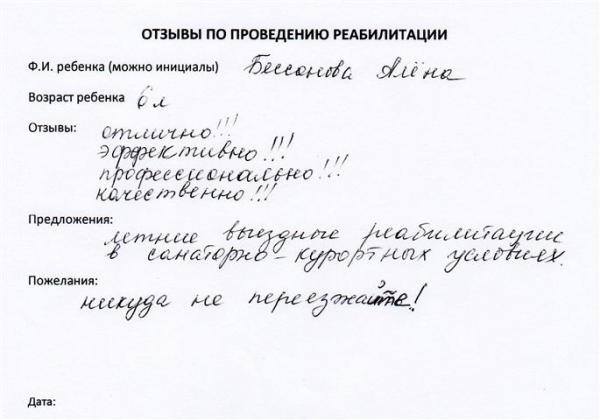 ОТЗЫВЫ ПО ПРОВЕДЕНИЮ РЕАБИЛИТАЦИИ
Ф.И. ребенка (можно инициалы) Бессонова Алёна
Возраст ребенка 6 л
Отзывы: отлично!!!
эффективно!!!
профессионально!!!
качественно!!!
Предложения:
летние выездные реабилитации
в санаторно-курортных условиях.
Пожелания:
никуда не переезжайте!
Дата: